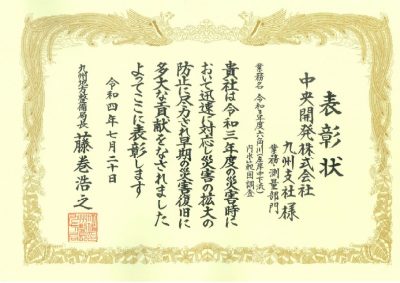 表彰状
業務 測量部門
中央開発株式会社
九州支社 様
業務名 令和3年度(六角川(左岸中下流)
内水範囲調査
貴社は令和三年度の災害時に
おいて迅速に対応し災害の拡大の
防止に尽力され早期の災害復旧に
多大な貢献をなされました
よってここに表彰します
令和四年七月二十日
九州地方整備局長 藤巻浩之